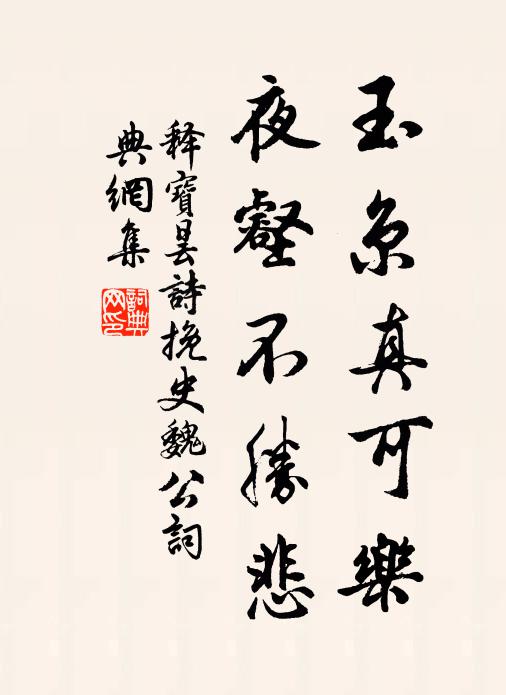 玉京真可樂
夜壑不勝悲
釋寶曇詩挽史魏公詞
典網集
詞典網印